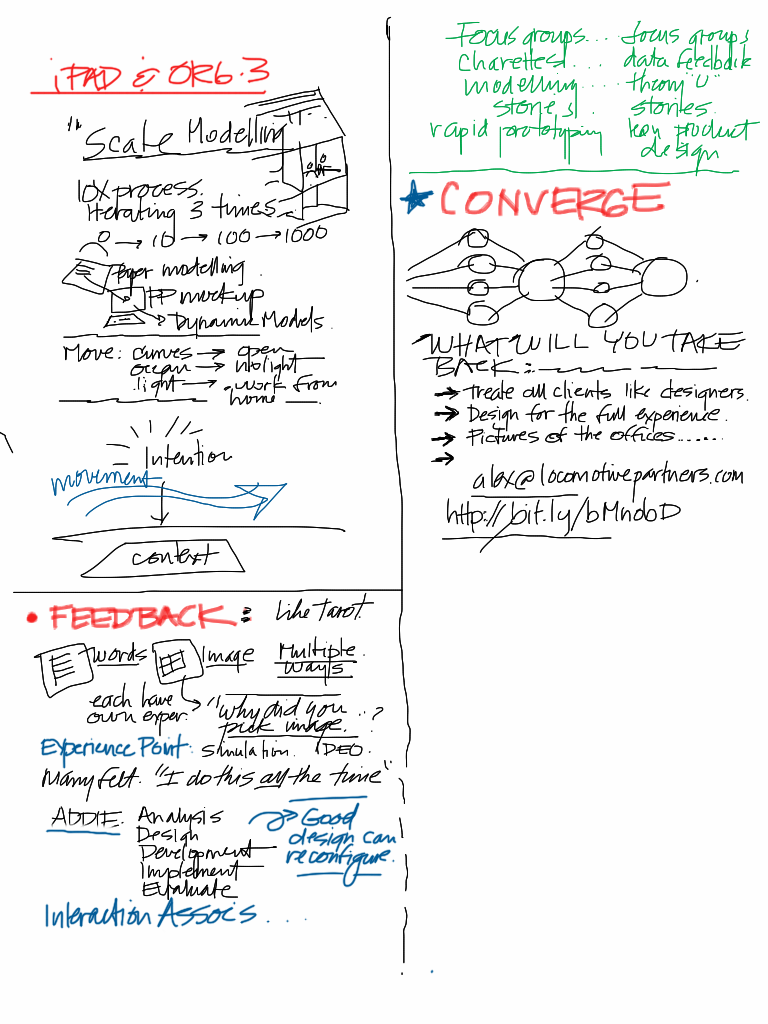 iPAD & ORG.3
"Scale Modelling
10X process.
Iterating 3 times
→ 10 → 100 → 1000
Paper modelling
PP mockup
Dynamic Models.
Move: curves → open
ocean → into light
light → work from
home
Intention
movement
context
• FEEDBACK: like Tarot.
words Image Multiple
ways
each have
own exper.
"why did you ..?
pick image.
Experience Point: Simulation. IDEO.
Many felt. "I do this all the time"
ADDIE: Analysis
Design
Development
Implement
Evaluate
Good
design can
reconfigure.
Interaction Assocs ...
Focus groups.... focus groups
Charettes... data feedback
modelling.... theory "U"
stories. stories.
rapid prototyping key product
design
CONVERGE
WHAT WILL YOU TAKE
BACK:
→ Treate all clients like designers.
→ Design for the full experience.
→ Pictures of the offices.......
→
alex@locomotivepartners.com
http://bit.ly/bMndoD